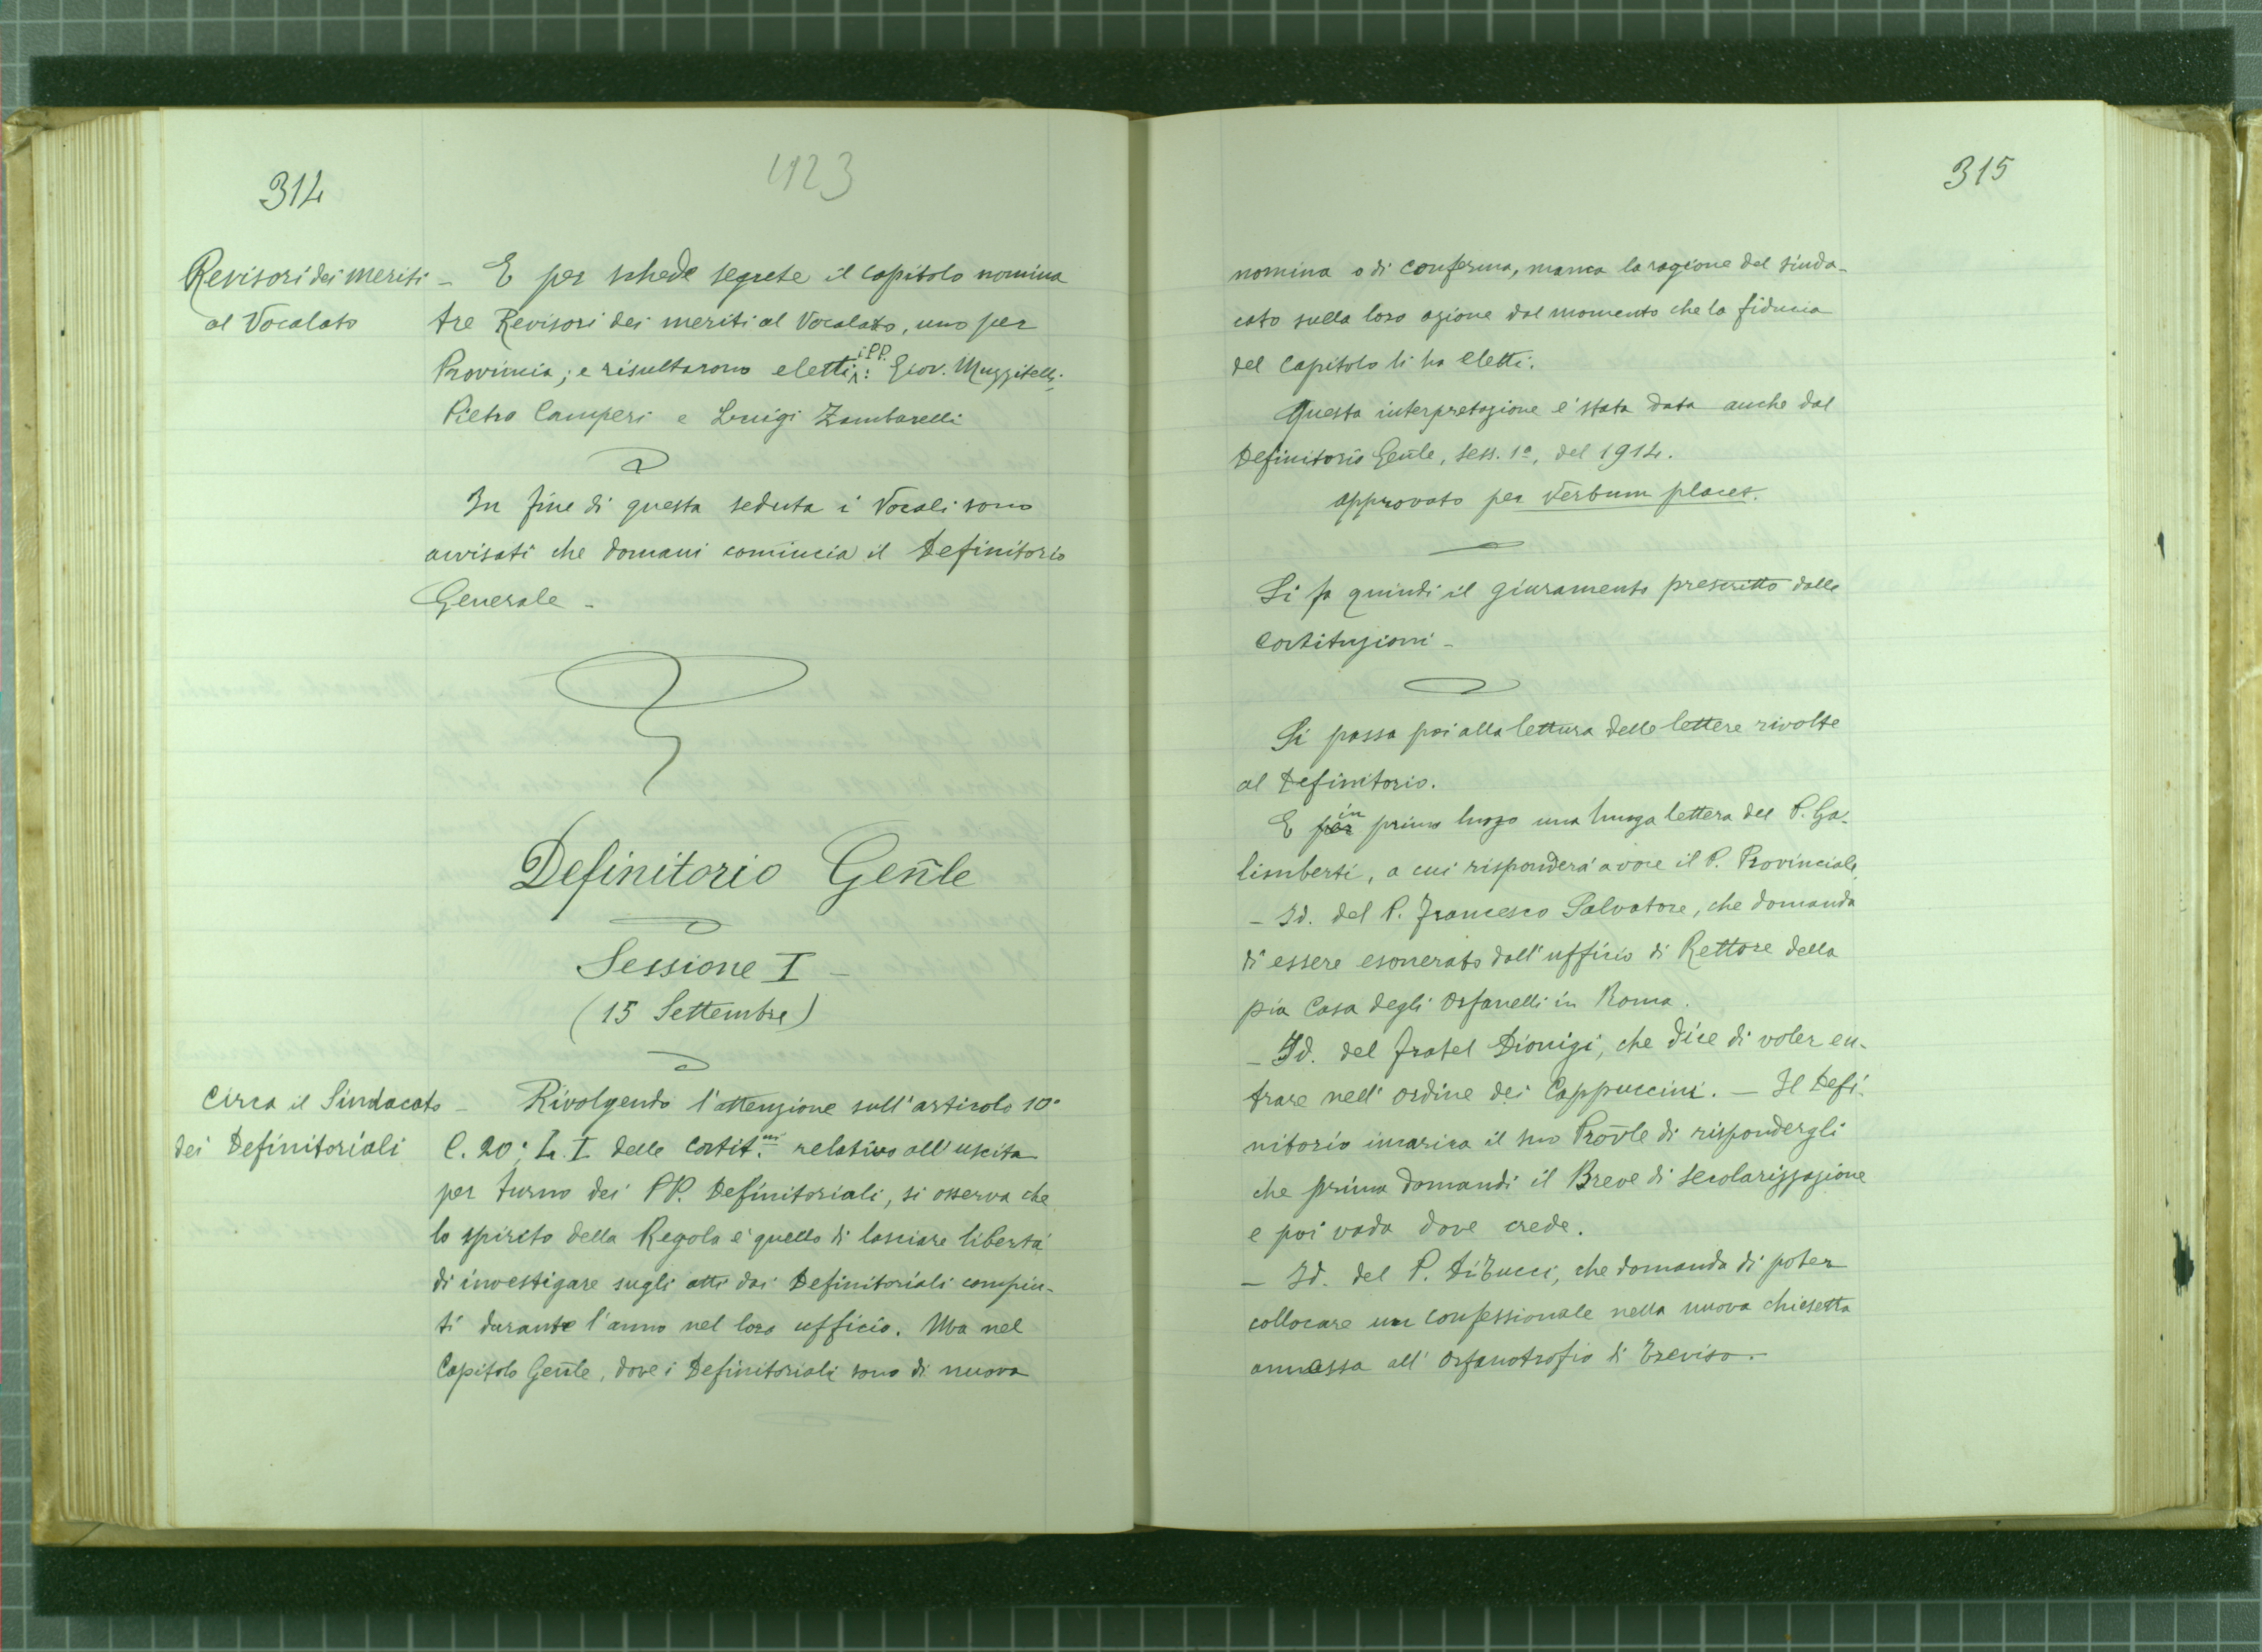 314
423
Revisori dei meriti
al Vocalato
– E per schede segrete il capitolo nomina
tre Revisori dei meriti al Vocalato, uno per
Provincia; e risultarono eletti i PP.: Giov. Muzzitelli,
Pietro Camperi e Luigi Zambarelli
In fine di questa seduta i Vocali sono
avvisati che domani comincia il Definitorio
Generale –
Definitorio Gen̄le
Sessione I –
(15 Settembre)
Circa il Sindacato
dei Definitoriali
– Rivolgendo l'attenzione sull'articolo 10°
C. 20; L. I delle Costit.ni relativo all'uscita
per turno dei PP. Definitoriali, si osserva che
lo spirito della Regola e' quello di lasciare liberta'
di investigare sugli atti dai Definitoriali compiu-
ti durante l'anno nel loro ufficio. Ma nel
Capitolo Gen̄le, dove i Definitoriali sono di nuova
315
nomina o di conferma, manca la ragione del sinda-
cato sulla loro azione dal momento che la fiducia
del Capitolo li ha eletti.
Questa interpretazione e' stata data anche dal
Definitorio Gen̄le, sess. 1a, del 1914.
Approvato per verbum placet.
Si fa quindi il giuramento prescritto dalle
Costituzioni –
Si passa poi alla lettura delle lettere rivolte
al Definitorio.
E per in primo luogo una lunga lettera del P. Ga-
limberti, a cui risponderà a voce il P. Provinciale.
– Id. del P. Francesco Salvatore, che domanda
di essere esonerato dall'ufficio di Rettore della
pia Casa degli Orfanelli in Roma.
– Id. del fratel Dionigi, che dice di voler en-
trare nell'ordine dei Cappuccini. – Il Defi-
nitorio incarica il suo Prov̄le di rispondergli
che prima domandi il Breve di secolarizzazione
e poi vada dove crede.
– Id. del P. Di Tucci, che domanda di poter
collocare un confessionale nella nuova chiesetta
annessa all'Orfanotrofio di Treviso.–